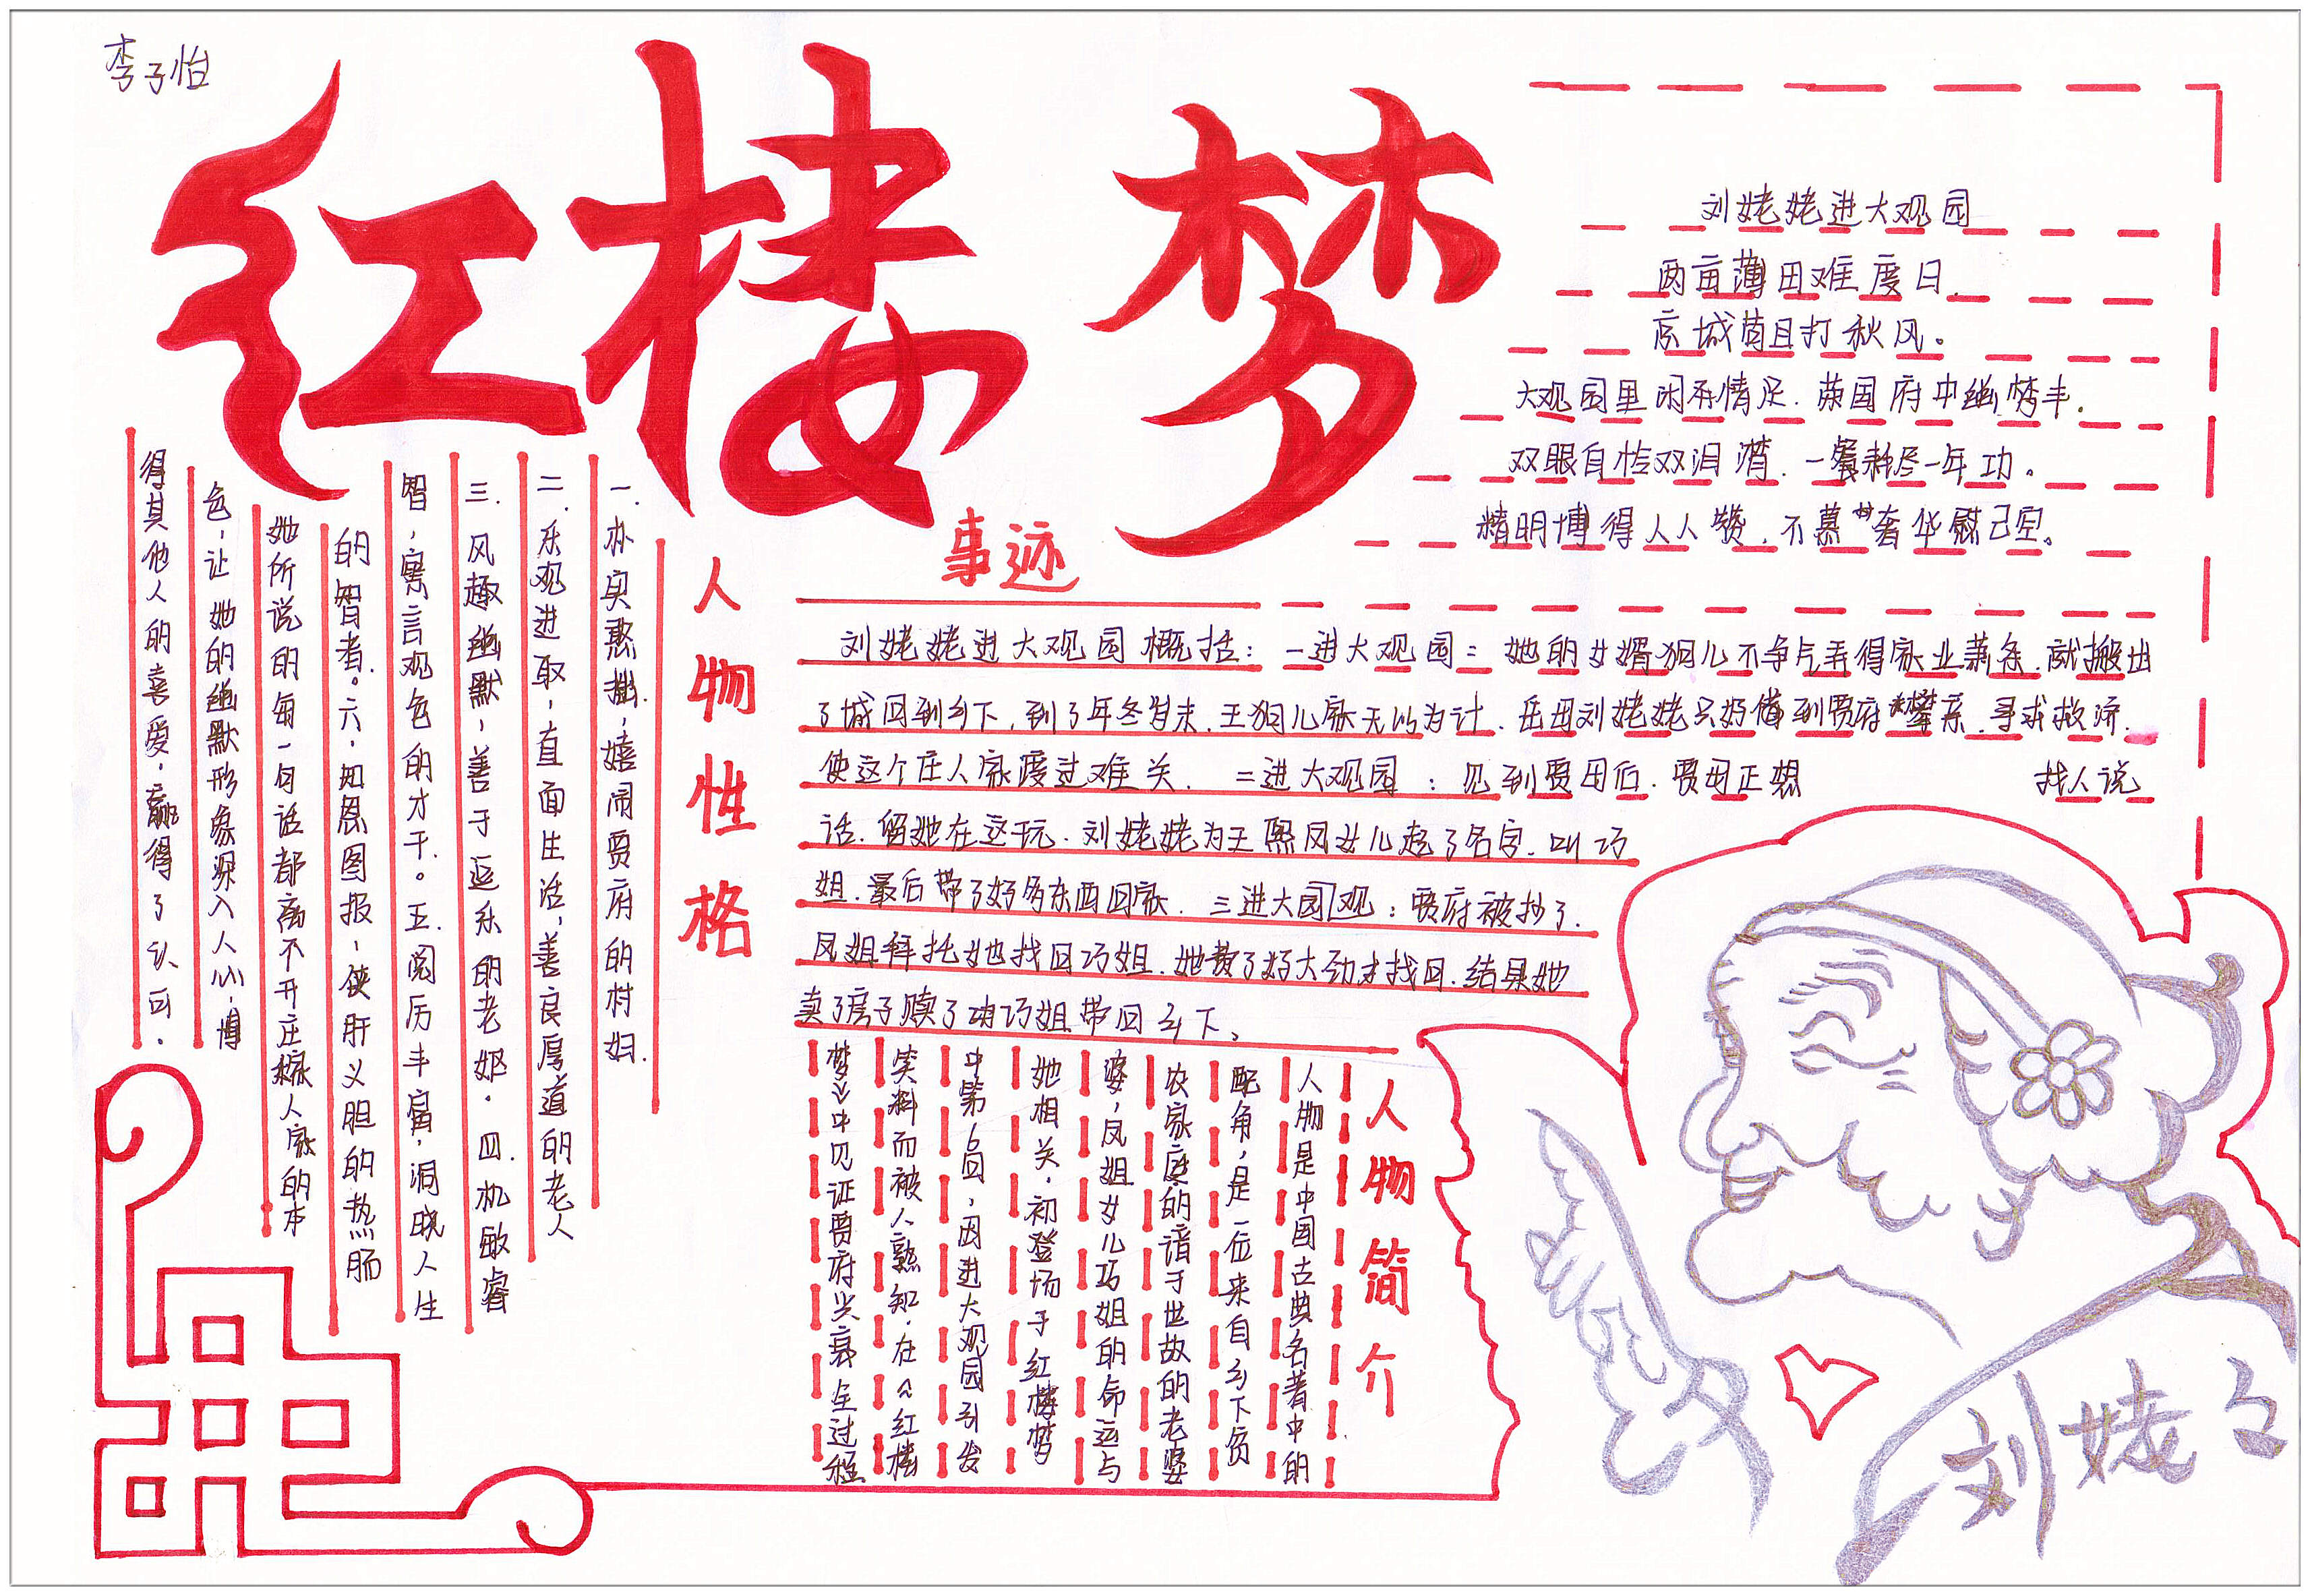 李子怡
红楼梦
刘姥姥进大观园
两亩薄田难度日.
京城苟且打秋风。
大观园里闲存情足.荣国府中幽梦丰.
双眼自怜双泪潸.一餐耗尽一年功。
精明博得人人赞.不慕奢华慰己空。
事迹
刘姥姥进大观园概括：一进大观园：她的女婿狗儿不争气弄得家业萧条.就搬出
了城回到乡下.到了年冬岁末.王狗儿家无以为计.岳母刘姥姥只好借到贾府攀亲.寻求救济.
使这个庄人家度过难关.二进大观园：见到贾母后.贾母正想 找人说
话.留她在这玩.刘姥姥为王熙凤女儿起了名字.叫巧
姐.最后带了好多东西回家.三进大园观：贾府被抄了.
凤姐拜托她找回巧姐.她费了好大劲才找回.结果她
卖了房子赎了 巧姐带回乡下。
人物性格
一.朴实憨拙，嬉闹贾府的村妇.
二.乐观进取，直面生活，善良厚道的老人
三.风趣幽默，善于逗乐的老妪.四.机敏睿
智，察言观色的才干。五.阅历丰富，洞晓人生
的智者。六.知恩图报，侠肝义胆的热肠
她所说的每一句话都离不开庄稼人家的本
色，让她的幽默形象深入人心，博
得其他人的喜爱，赢得了认可.
人物简介
人物是中国古典名著中的
配角，是一位来自乡下贫
农家庭的谙于世故的老婆
婆，凤姐女儿巧姐的命运与
她相关.初登场于红楼梦
中第6回，因进大观园引发
笑料而被人熟知.在《红楼
梦》中见证贾府兴衰全过程
刘姥々